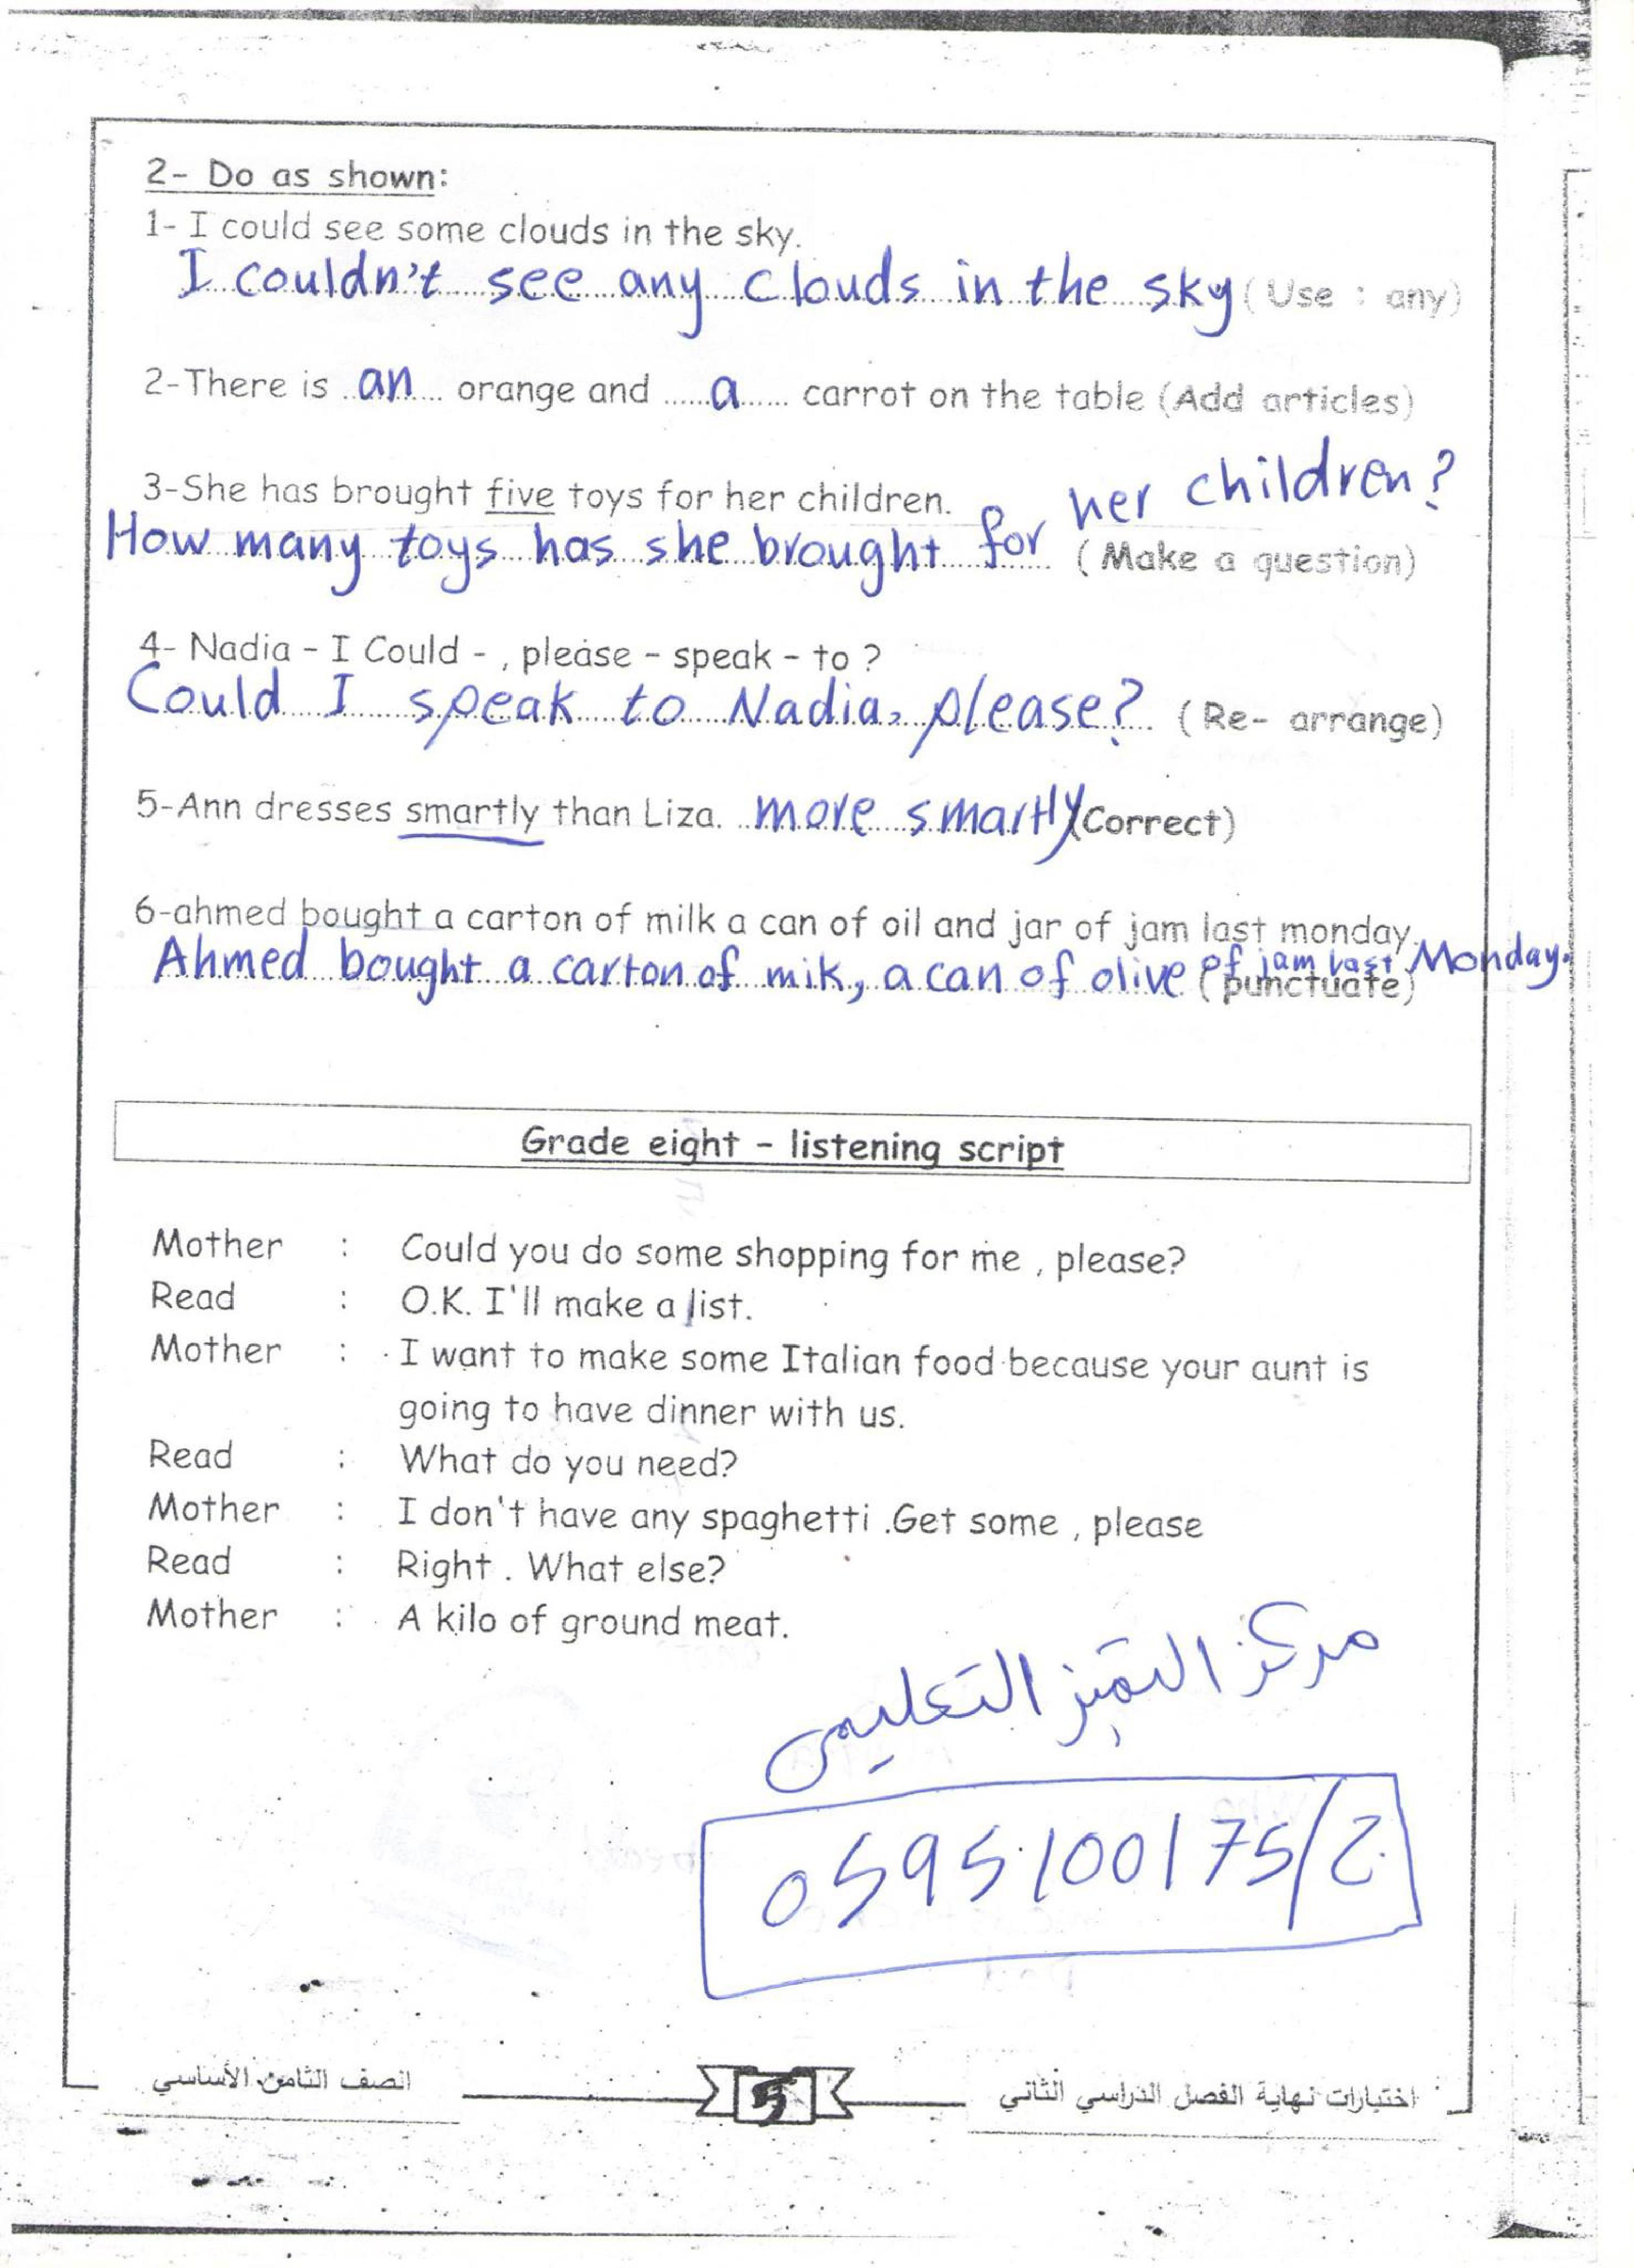 2- Do as shown:
1- I could see some clouds in the sky.
I couldn't see any clouds in the sky (Use : any)
2-There is an orange and a carrot on the table (Add articles)
3-She has brought five toys for her children.
How many toys has she brought for her children?
(Make a question)
4- Nadia - I Could - , please - speak - to ?
Could I speak to Nadia, please? (Re- arrange)
5-Ann dresses smartly than Liza. more smartly (Correct)
6-ahmed bought a carton of milk a can of oil and jar of jam last monday.
Ahmed bought a carton of mik, a can of olive of jam last Monday.
(punctuate)
Grade eight - listening script
Mother : Could you do some shopping for me , please?
Read : O.K. I'll make a list.
Mother : I want to make some Italian food because your aunt is
going to have dinner with us.
Read : What do you need?
Mother : I don't have any spaghetti .Get some , please
Read : Right . What else?
Mother : A kilo of ground meat.
مركز التميز التعليمي
0595100175/2
اختبارات نهاية الفصل الدراسي الثاني
5
الصف الثامن الأساسي